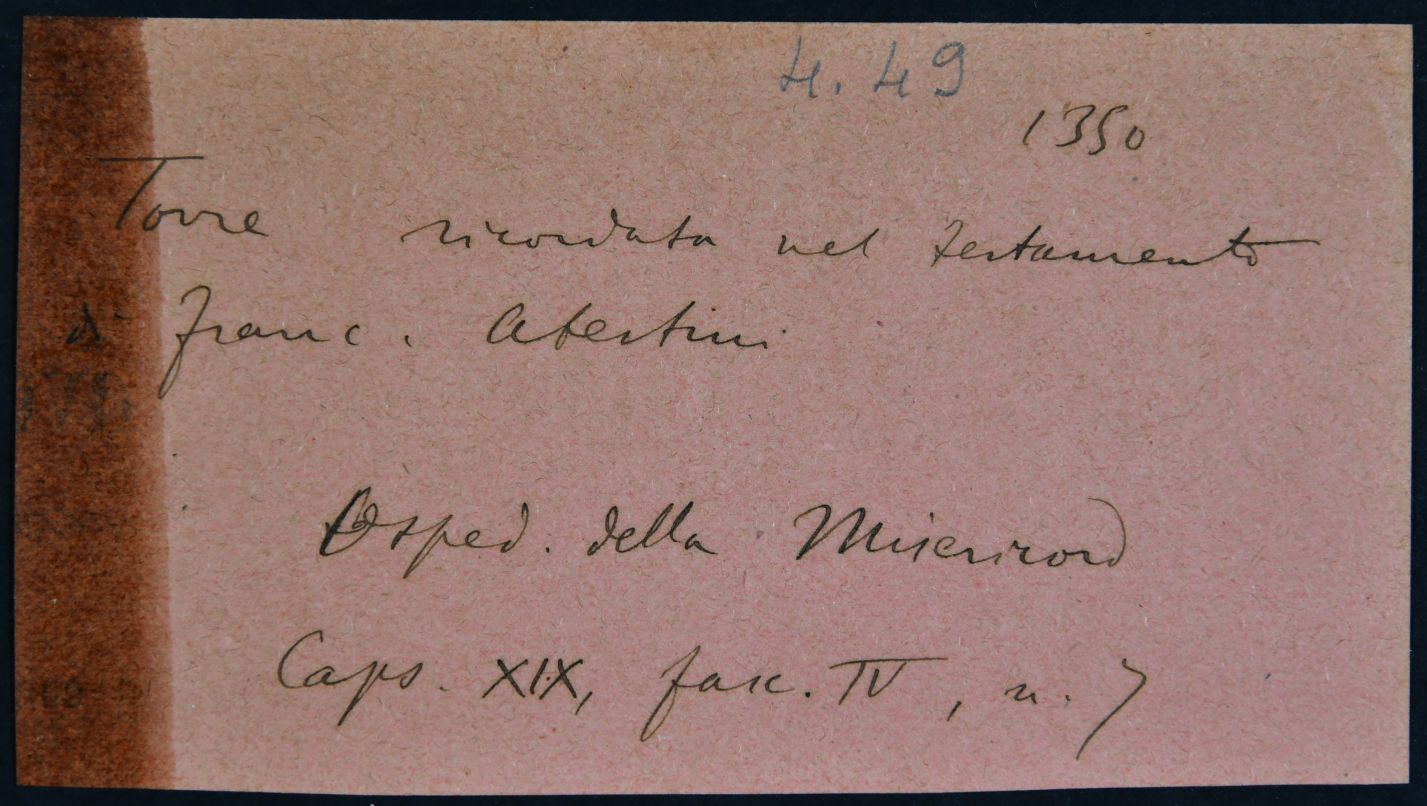 4.49
1350
Torre ricordata nel testamento
di Franc. Abertini
Osped. della Misericord
Caps. XIX, fasc. IV, n. 7